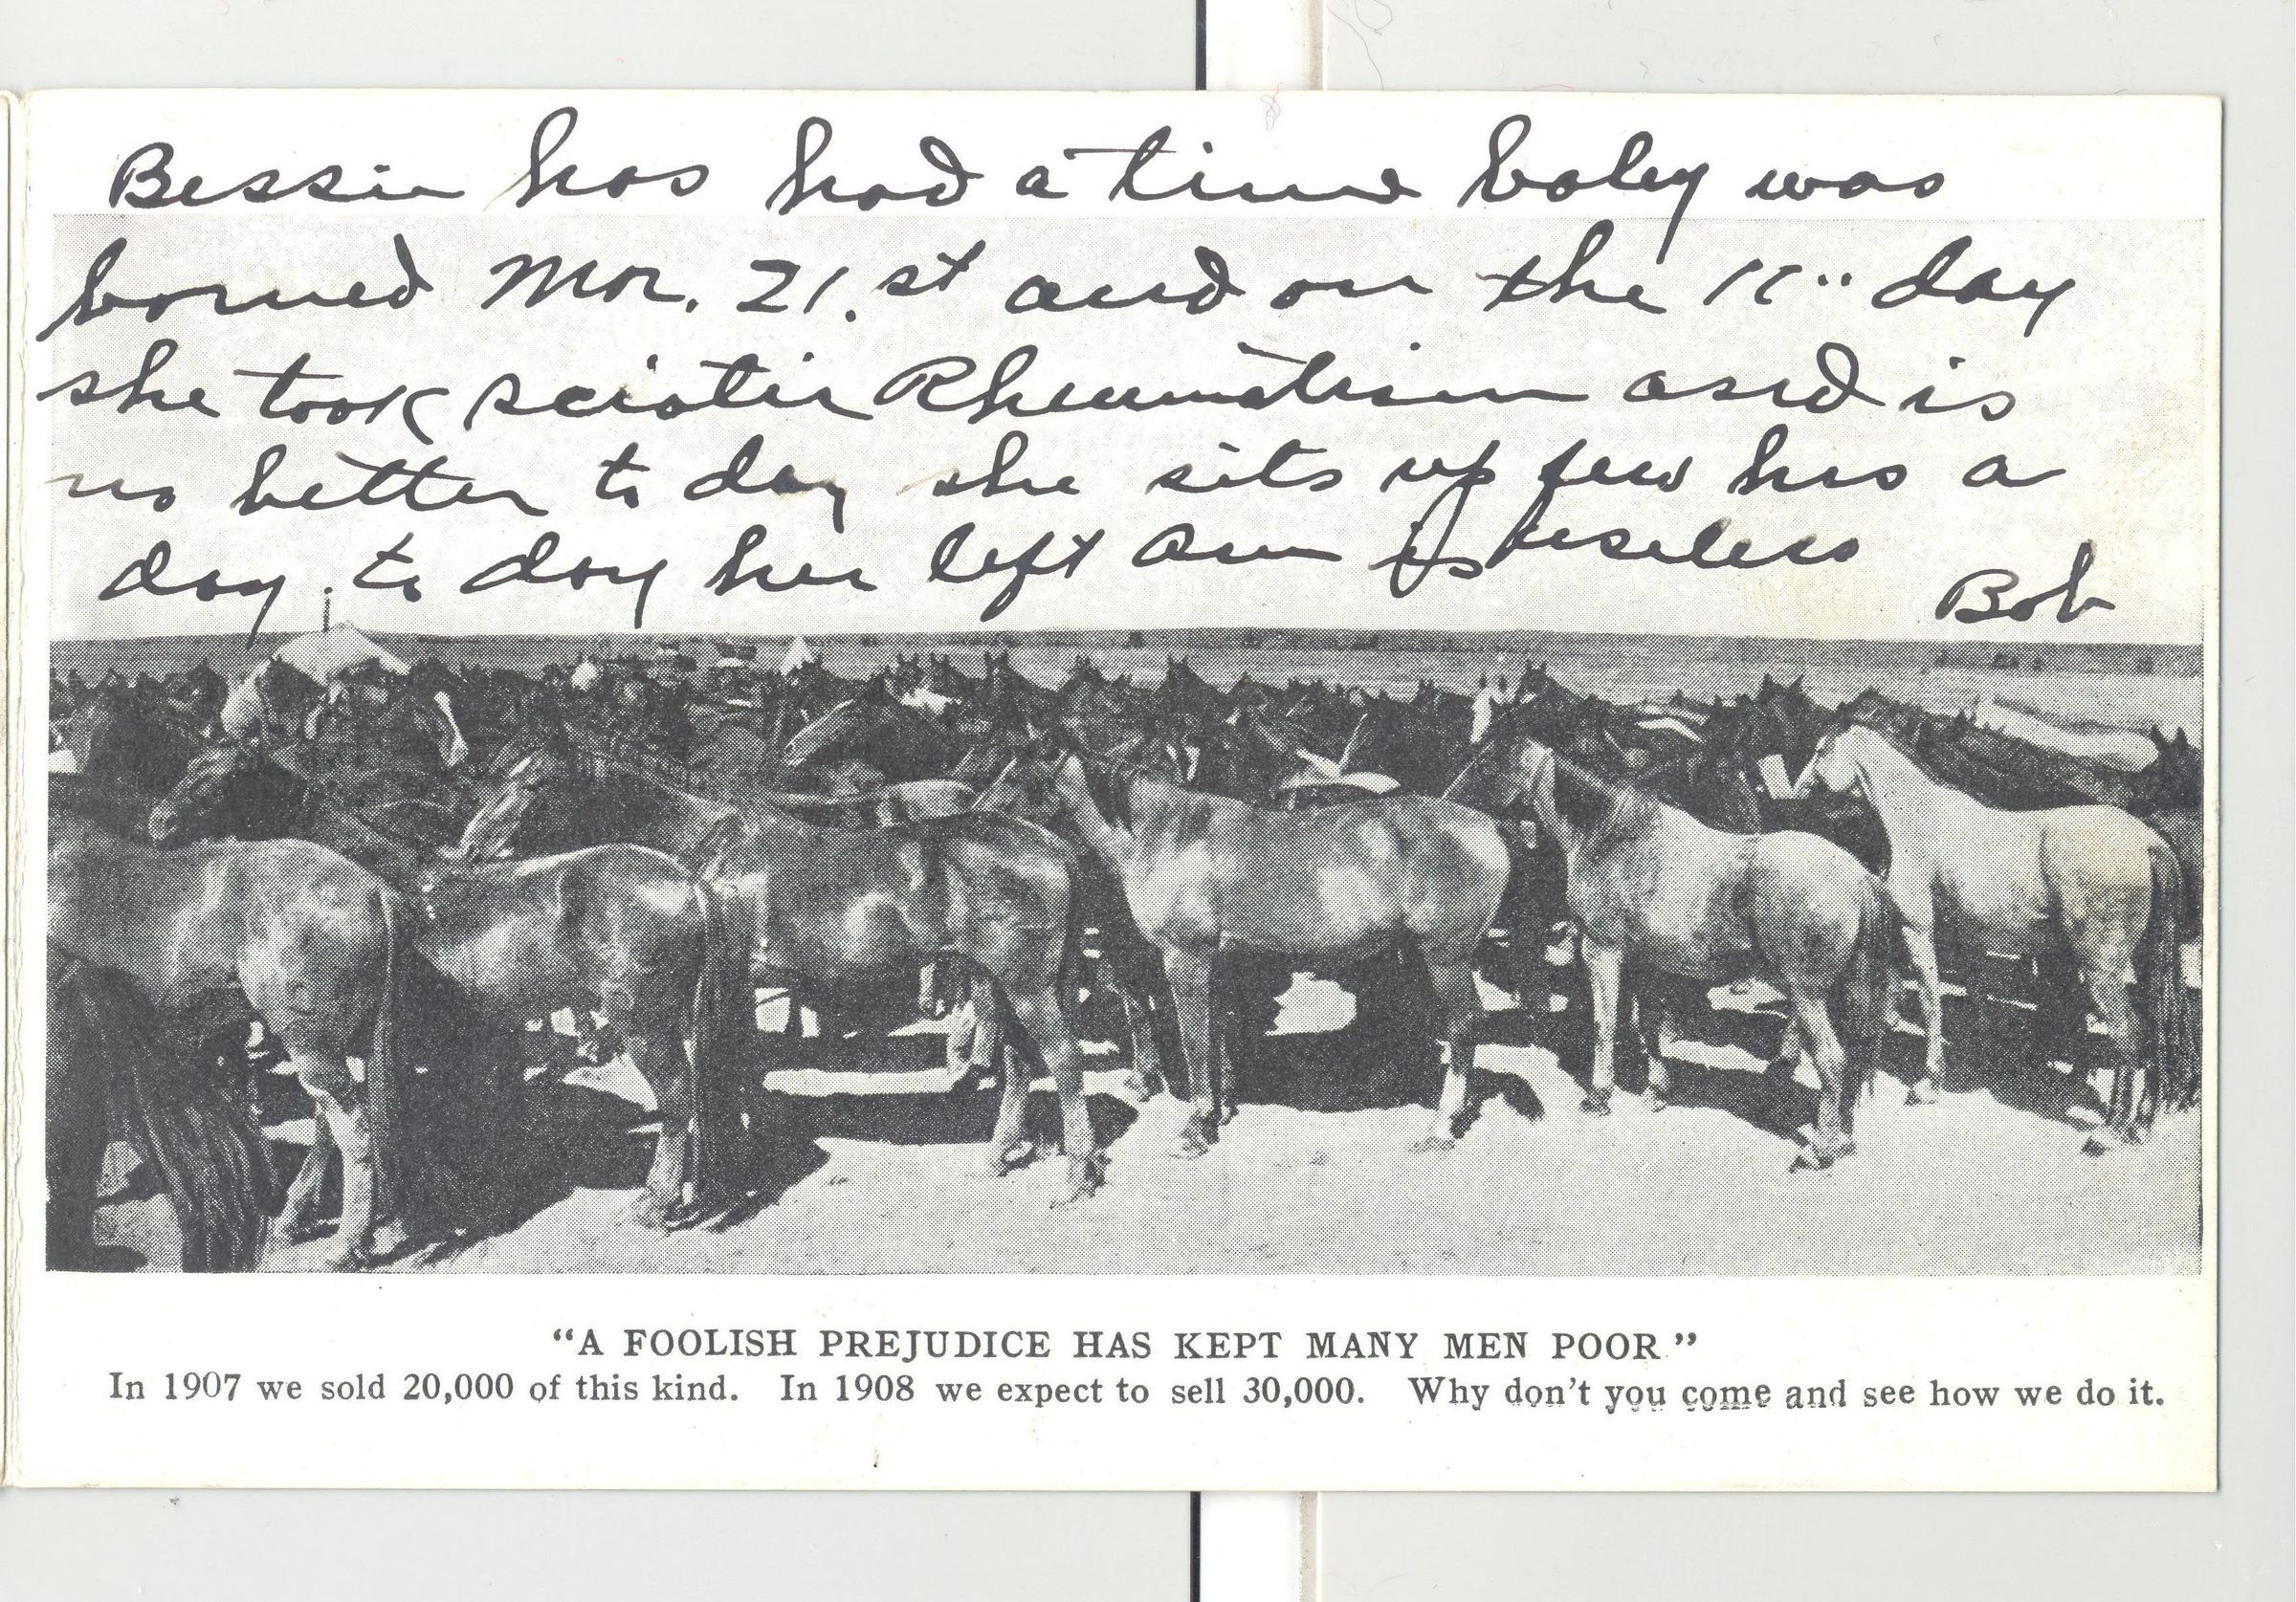 Bessie has had a time baby was
borned Mar. 21.st and on the 11" day
she took sciatic Rheumatism and is
no better to day she sits up few hrs a
day. to day her left arm is useless
Bob
"A FOOLISH PREJUDICE HAS KEPT MANY MEN POOR"
In 1907 we sold 20,000 of this kind. In 1908 we expect to sell 30,000. Why don't you come and see how we do it.